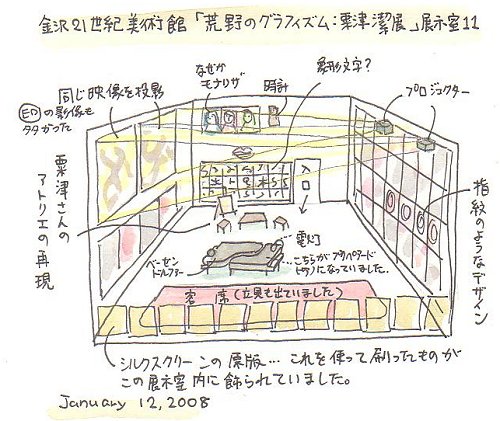 金沢21世紀美術館「荒野のグラフィズム:粟津潔展」展示室11
なぜか
モナリザ
時計
象形文字?
プロジェクター
同じ映像を投影
EDの影像も
多かった
粟津さんの
アトリエの再現
入口
指紋のようなデザイン
ベーゼン
ドルファー
電灯
こちらが
になっていました。
客席(立見も出ていました)
シルクスクリーンの原版…これを使って刷ったものが
この展示室内に飾られていました。
January 12, 2008